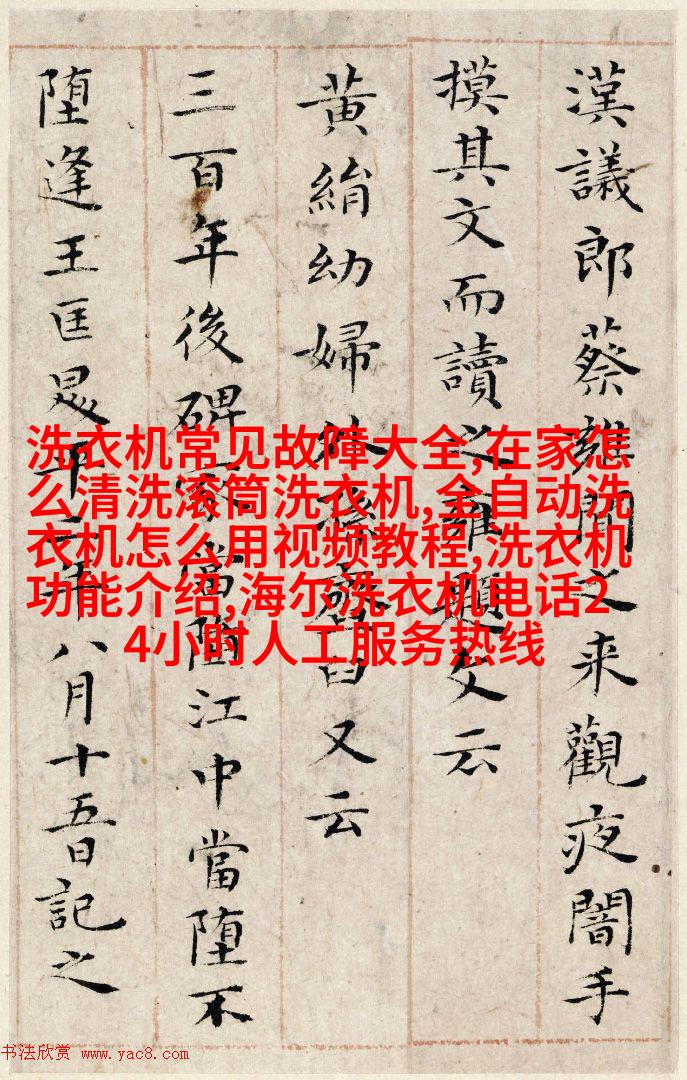 漢議郎蔡雝聞之来觀夜闇手
摸其文而讀之雝題文云
黃絹幼婦外孫齏臼又云
三百年後碑冢當堕江中當堕不
堕逢王匡平二年八月十五日記之
洗衣机常见故障大全,在家怎
么清洗滚筒洗衣机,全自动洗
衣机怎么用视频教程,洗衣机
功能介绍,海尔洗衣机电话2
4小时人工服务热线
书法欣赏 www.yac8.com